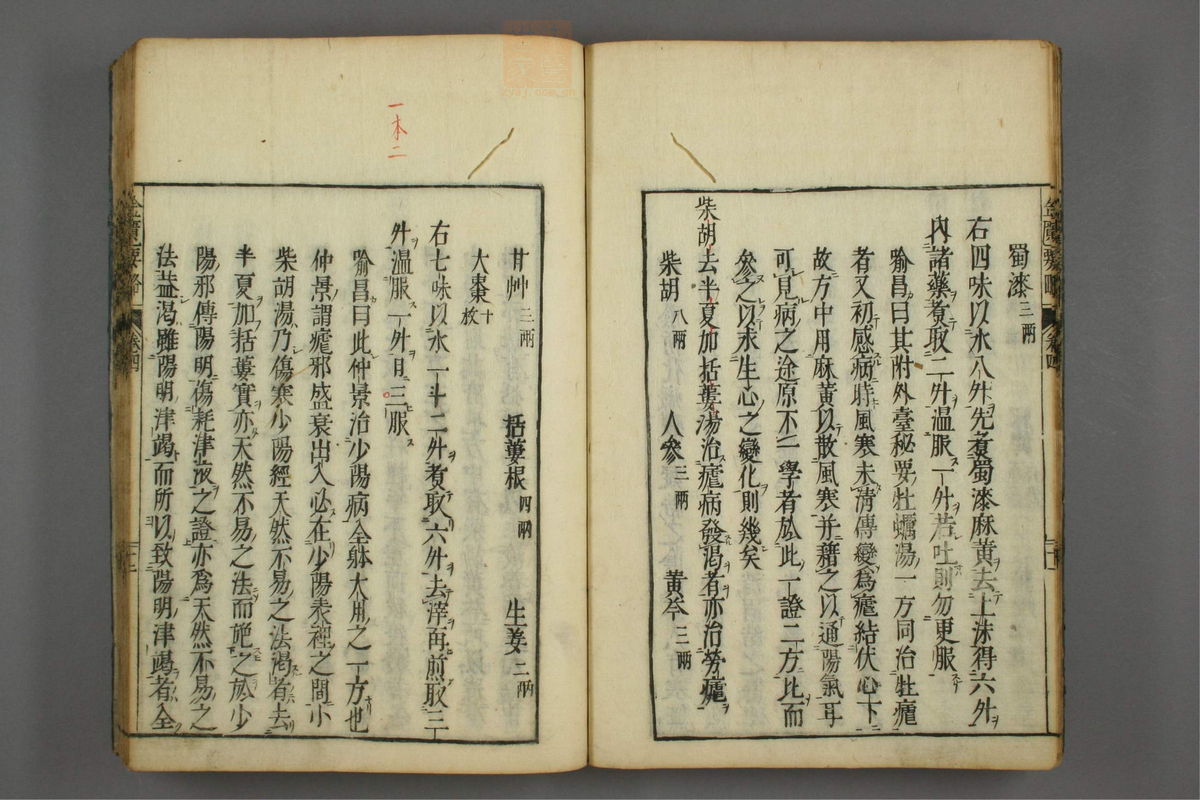 蜀漆三兩
右四味以水八升先煑蜀漆麻黃去上沫得六升
內諸藥煑取二升温服一升若吐則勿更服
喻昌曰其附外臺秘要牡蠣湯一方同治牡瘧
者又初感病時風寒未清傳變爲瘧結伏心下
故方中用麻黃以散風寒并藉之以通陽氣耳
可見病之途原不一學者於此一證二方比而
參之以求生心之變化則幾矣
柴胡去半夏加括蔞湯治瘧病發渴者亦治勞瘧
柴胡八兩 人參三兩 黃芩三兩
甘艸三兩 括蔞根四兩 生姜二兩
大棗十枚
右七味以水一斗二升煑取六升去滓再煎取三
升温服一升日三服
喻昌曰此仲景治少陽病全躰大用之一方也
仲景謂瘧邪盛衰出入必在少陽表裡之間小
柴胡湯乃傷寒少陽經天然不易之法渴者去
半夏加括蔞實亦天然不易之法而施之於少
陽邪傳陽明傷耗津液之證亦爲天然不易之
法益渴雖陽明津竭而所以致陽明津竭者全
一本二
金匱要略
卷四